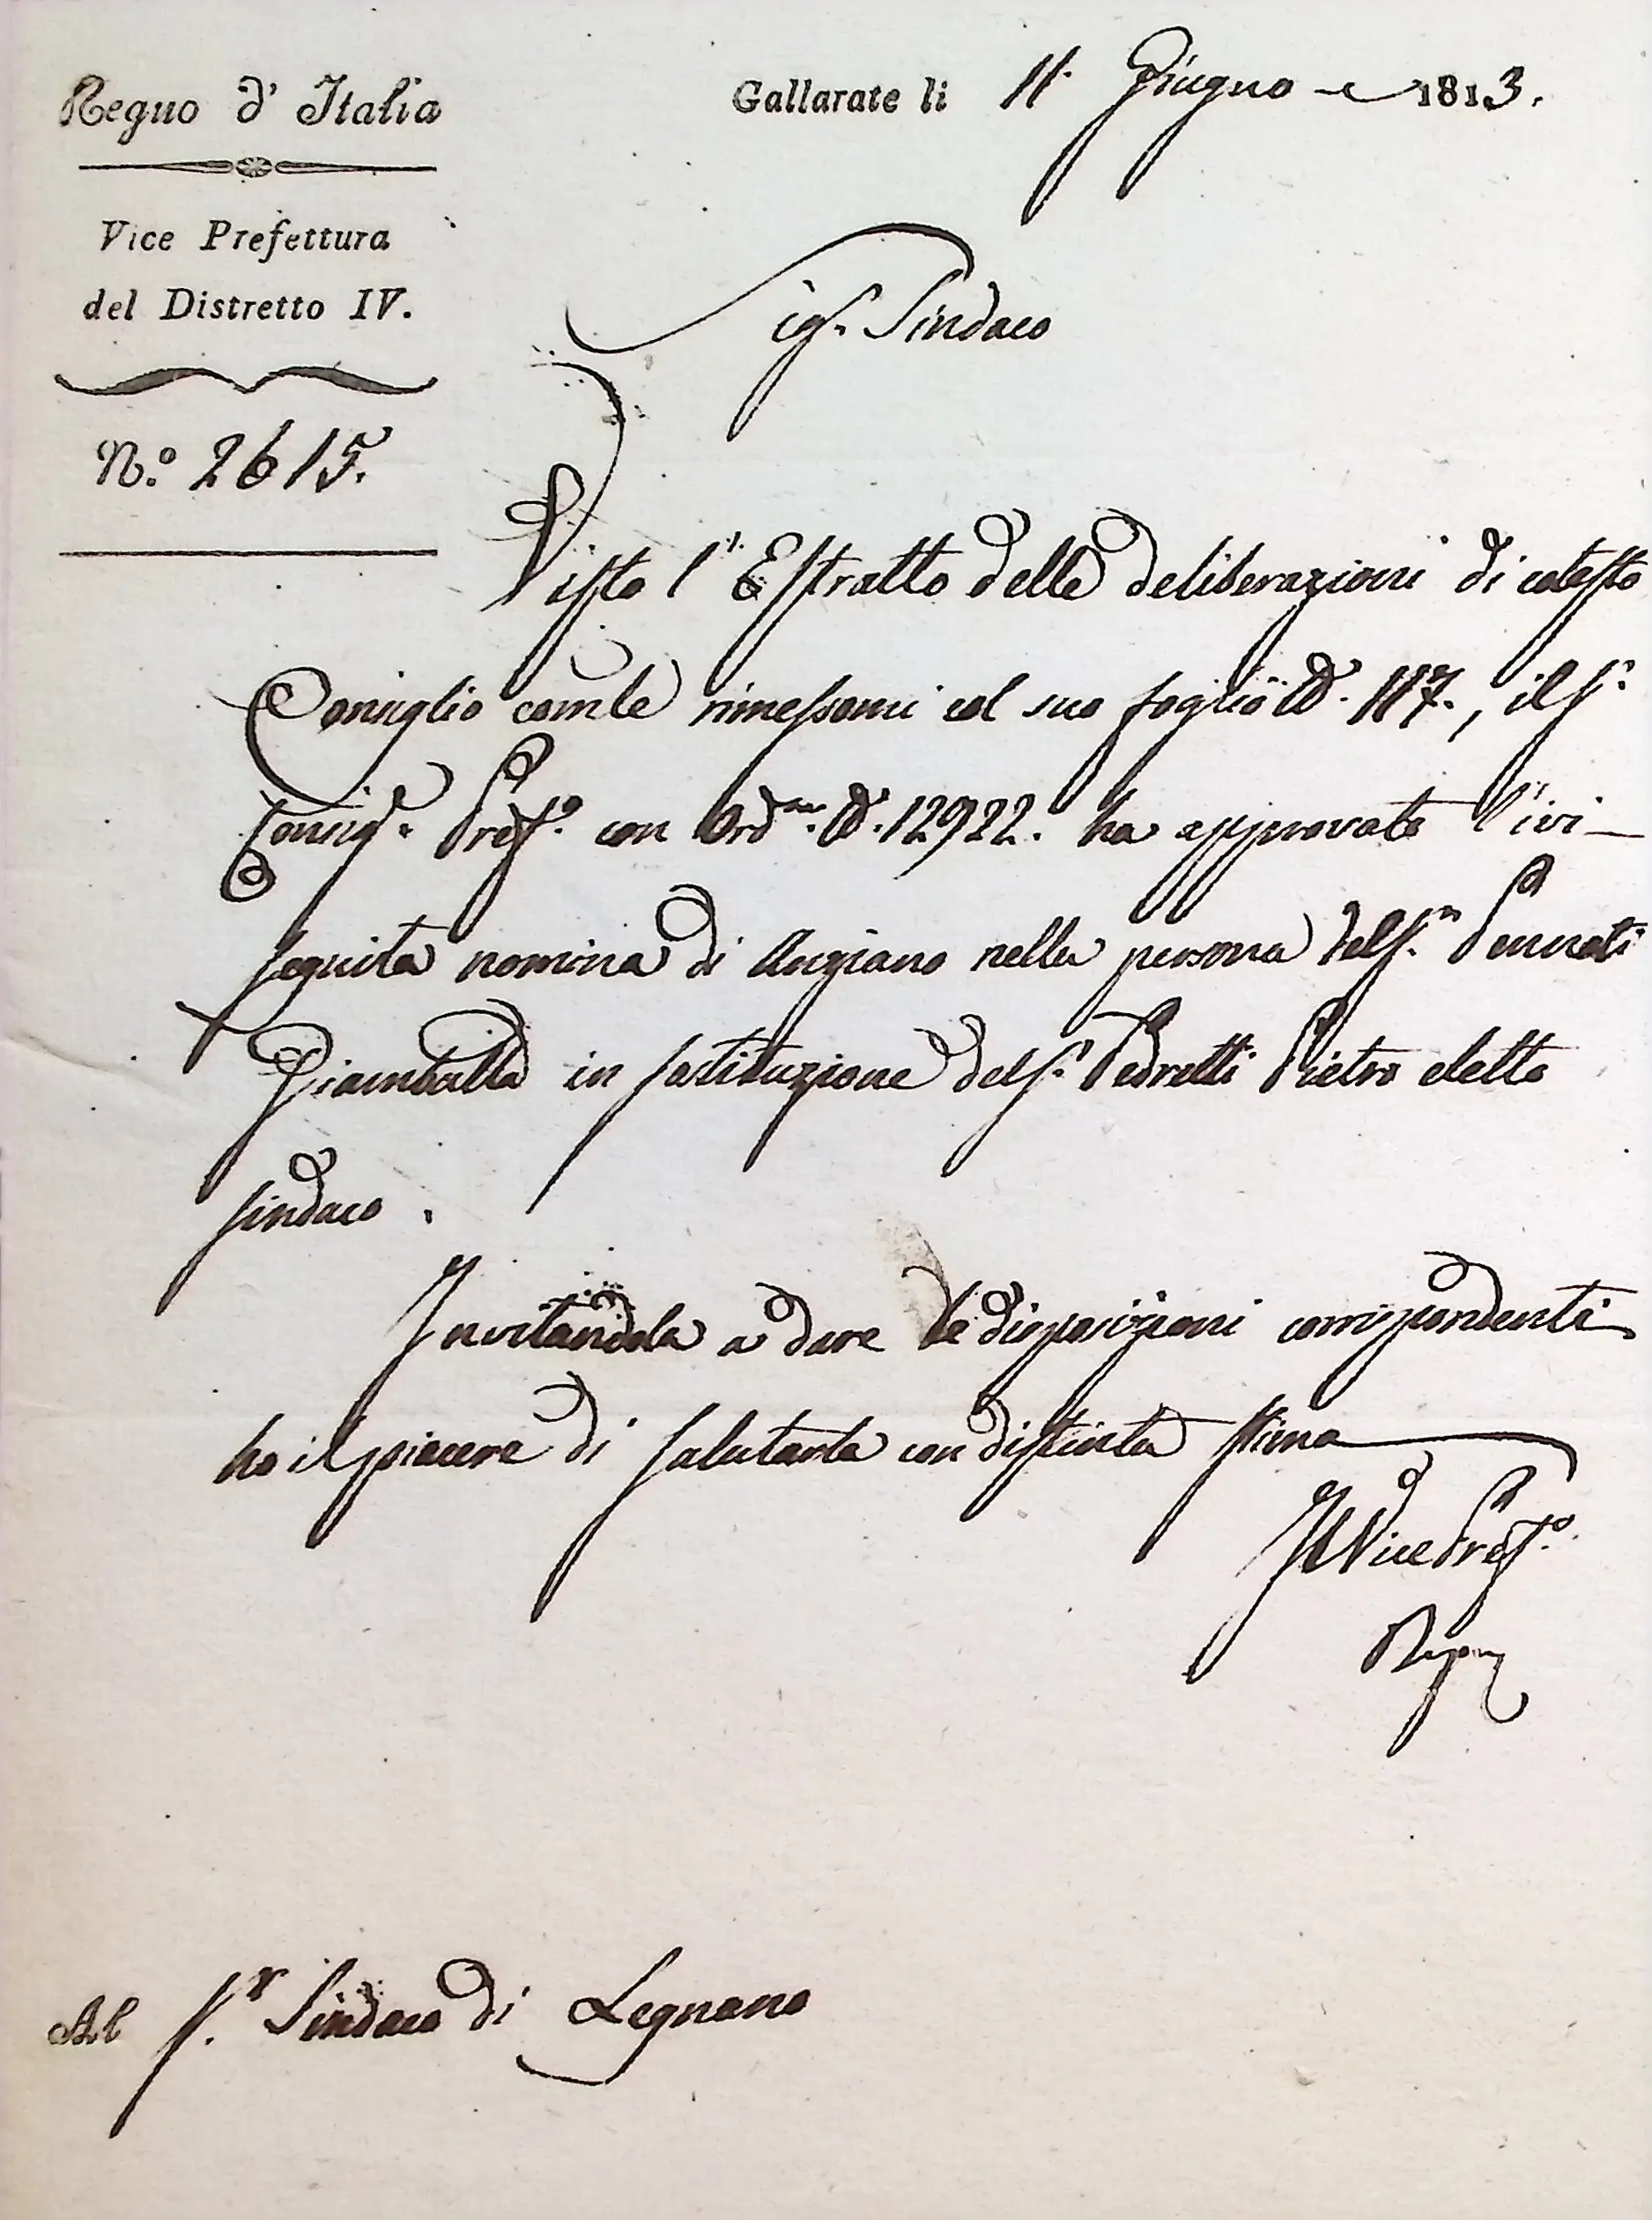 Regno d' Italia
Vice Prefettura
del Distretto IV.
N.º 2615.
Gallarate li 11. Giugno 1813.
Sig.r Sindaco
Visto l' Estratto delle deliberazioni di cotesto
Consiglio com.le rimessomi col suo foglio N. 117., il S.r
Consig.e Pref.o con Ord.za N. 12922. ha approvato l'ivi
seguita nomina di Anziano nella persona del S.r Pennati
Giambatta in sostituzione del S.r Pedretti Pietro eletto
Sindaco.
Invitandola a dare le disposizioni corrispondenti
ho il piacere di salutarla con distinta stima
Il Vice Pref.o
Al S.r Sindaco di Legnano